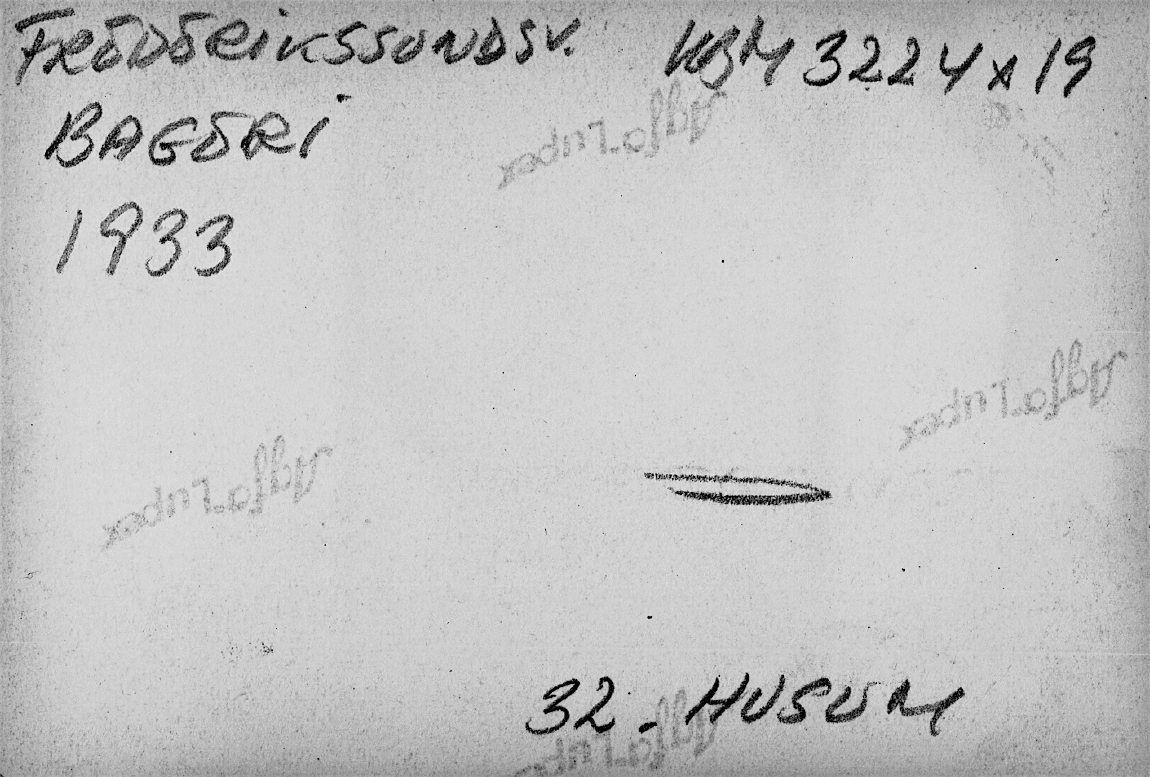 FREDERIKSSUNDSV. KBM 3224 x 19
BAGERI
1933
Agfa Lupex
Agfa Lupex
Agfa Lupex
32. HUSUM
Agfa Lupex